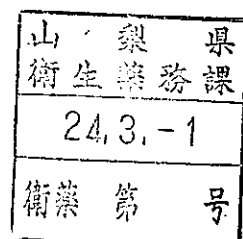 山梨県
衛生薬務課
24.3.-1
衛薬第 号